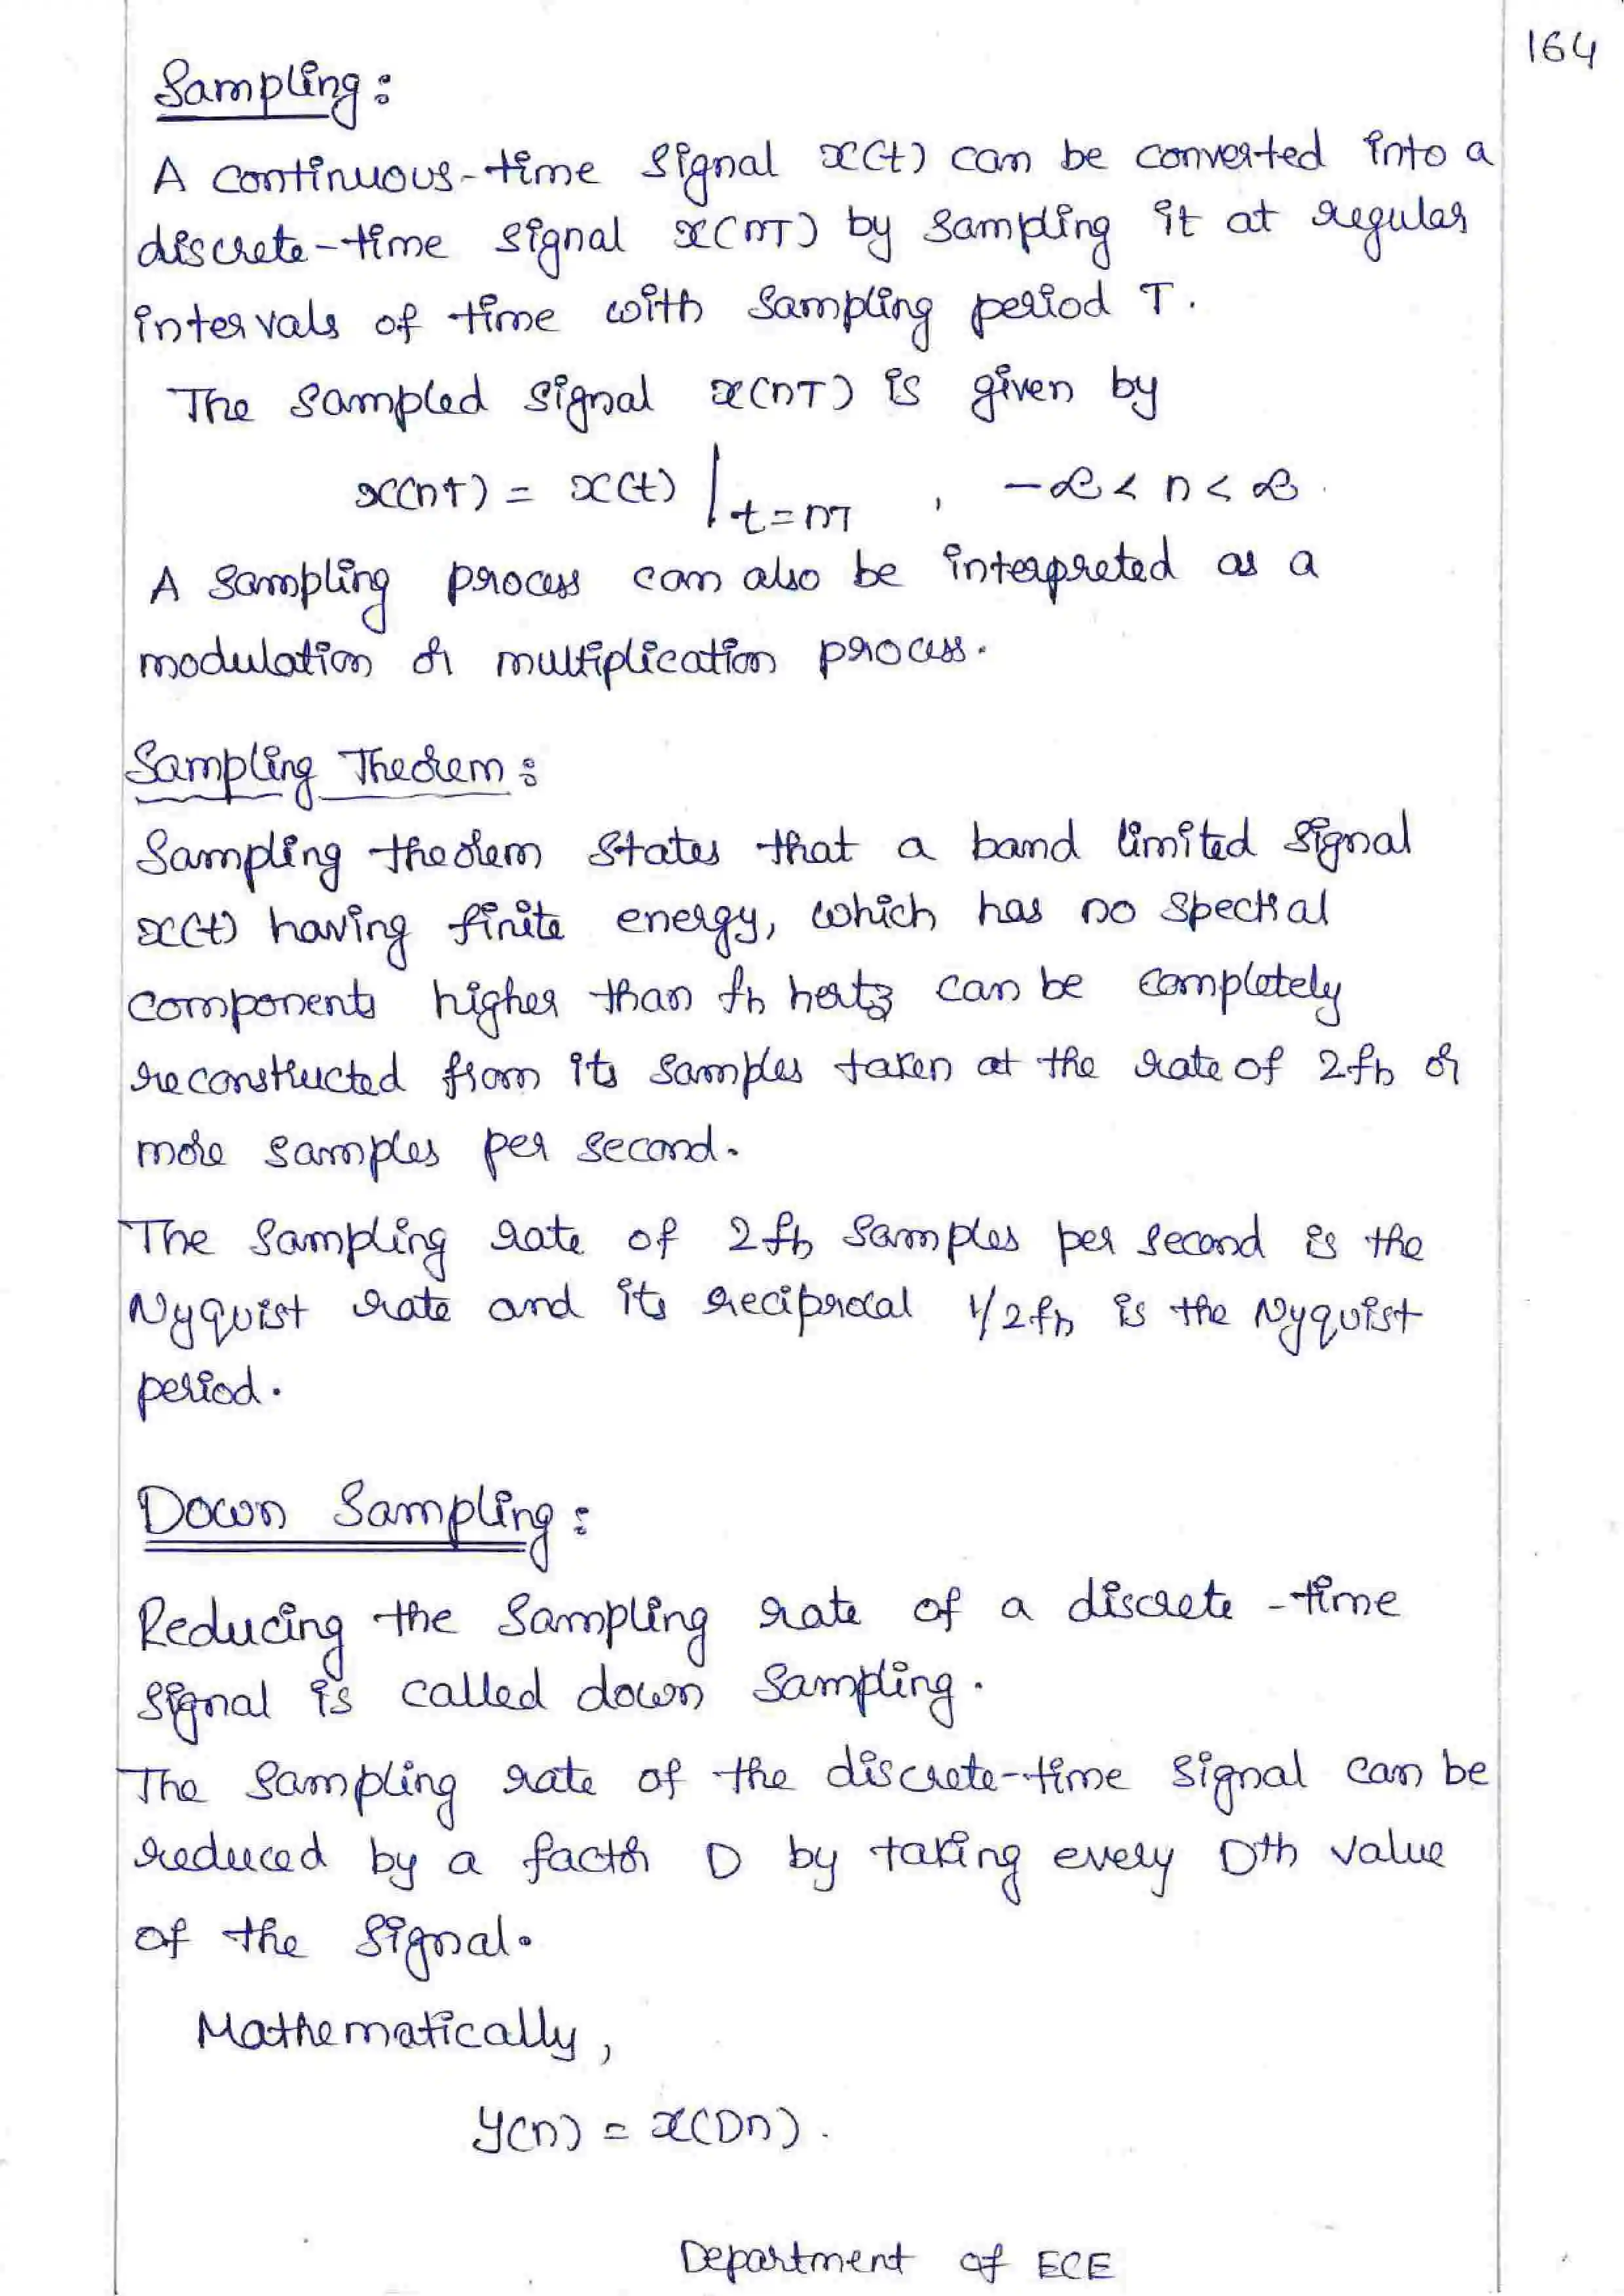 164
Sampling :
A continuous-time signal x(t) can be converted into a
discrete-time signal x(nT) by sampling it at regular
intervals of time with sampling period T.
The sampled signal x(nT) is given by
x(nT) = x(t) |t=nT , -∞ < n < ∞.
A sampling process can also be interpreted as a
modulation or multiplication process.
Sampling Theorem :
Sampling theorem states that a band limited signal
x(t) having finite energy, which has no spectral
components higher than fh hertz can be completely
reconstructed from its samples taken at the rate of 2fh or
more samples per second.
The sampling rate of 2fh samples per second is the
Nyquist rate and its reciprocal 1/2fh is the Nyquist
period.
Down Sampling :
Reducing the sampling rate of a discrete-time
signal is called down sampling.
The sampling rate of the discrete-time signal can be
reduced by a factor D by taking every Dth value
of the signal.
Mathematically,
y(n) = x(Dn).
Department of ECE